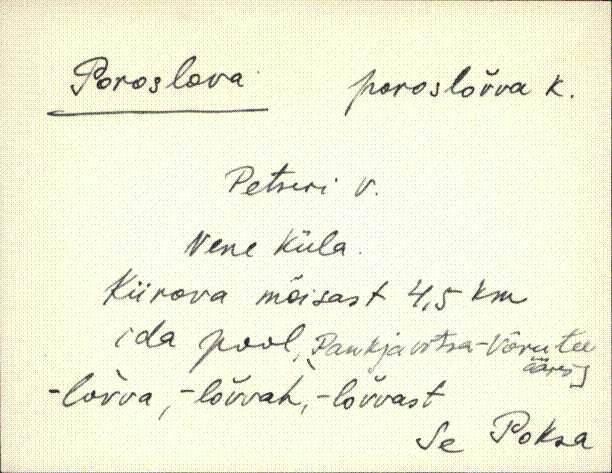 Poroslova poroslõvva k.
Petseri v.
Vene küla.
Kiirova mõisast 4,5 km
ida pool, Pankjavitsa-Võru tee
ääres
-lõvva, -lõvvah, -lõvvast
Se Poksa